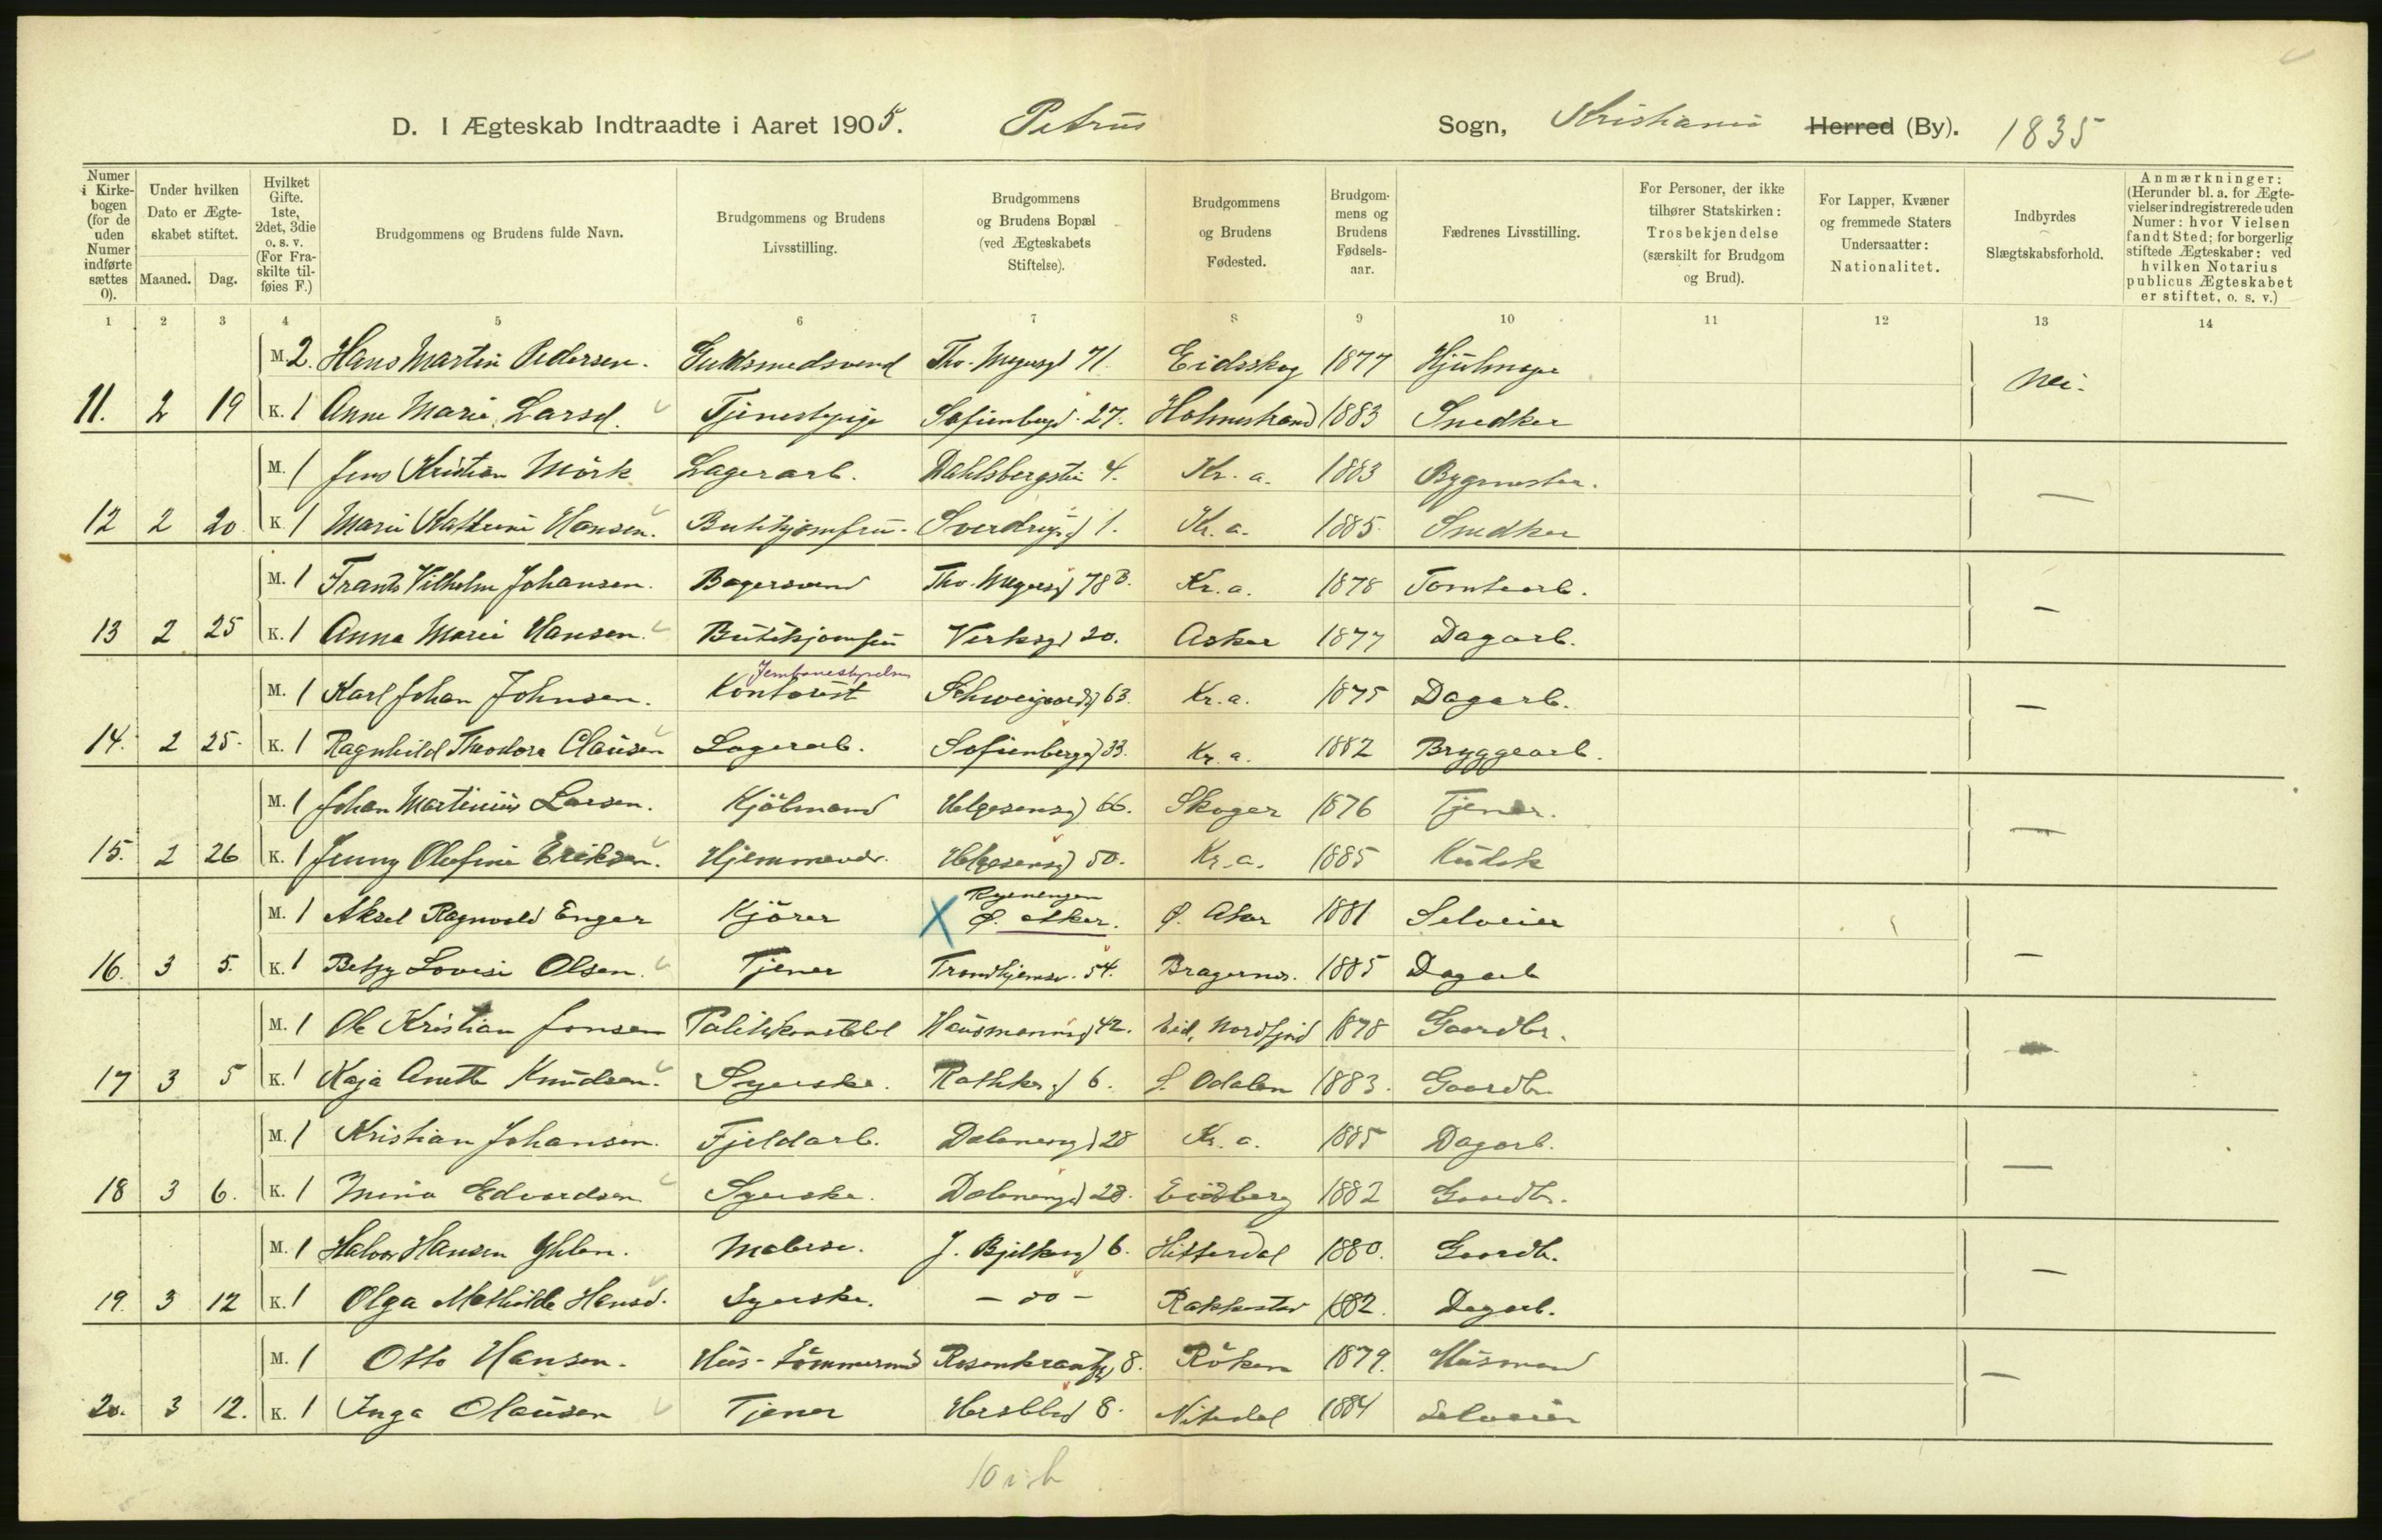 D. I Ægteskab Indtraadte i Aaret 1905. Petrus Sogn, Kristiania Herred (By). 1835
Numer i Kirkebogen (for de uden Numer indførte sættes 0).
Under hvilken Dato er Ægteskabet stiftet.
Maaned. Dag.
Hvilket Gifte. 1ste, 2det, 3die o. s. v. (For Fraskilte tilføies F.)
Brudgommens og Brudens fulde Navn.
Brudgommens og Brudens Livsstilling.
Brudgommens og Brudens Bopæl (ved Ægteskabets Stiftelse).
Brudgommens og Brudens Fødested.
Brudgommens og Brudens Fødselsaar.
Fædrenes Livsstilling.
For Personer, der ikke tilhører Statskirken: Trosbekjendelse (særskilt for Brudgom og Brud).
For Lapper, Kvæner og fremmede Staters Undersaatter: Nationalitet.
Indbyrdes Slægtskabsforhold.
Anmærkninger: (Herunder bl. a. for Ægtevielser indregistrerede uden Numer: hvor Vielsen fandt Sted; for borgerlig stiftede Ægteskaber: ved hvilken Notarius publicus Ægteskabet er stiftet, o. s. v.)
1 2 3 4 5 6 7 8 9 10 11 12 13 14
M. 2. Hans Martin Pedersen. Guldsmedsvend Tho. Meyersgd 71. Eidsskog 1877 Hjulmager
11. 2 19 K. 1 Anne Marie Larsd. Tjenestepige Sofienbergd. 27. Holmestrand 1883 Snedker Nei.
M. 1 Jens Kristian Mörk Lagerarb. Dahlsbergstien 4. Kr. a. 1883 Bygmester.
12 2 20 K. 1 Marie Kathrine Hansen. Butikjomfru. Sverdrupsgd 1. Kr. a. 1885. Snedker —
M. 1 Frants Vilhelm Johansen. Bagersvend Tho. Meyersgd 78 B. Kr. a. 1878 Tomtearb.
13 2 25 K. 1 Anna Marie Hansen. Butikjomfru Verksgd 20. Asker 1877 Dagarb. —
Jernbanestyrelsen
M. 1 Karl Johan Johnsen. Kontorist Schweigaardsgd 63. Kr. a. 1875 Dagarb.
14. 2 25. K. 1 Ragnhild Theodora Clausen Lagerarb. Sofienberggd 33. Kr. a. 1882 Bryggearb. —
M. 1 Johan Martinius Larsen. Kjöbmand Helgesensgd 66. Skoger 1876 Tjener.
15. 2 26 K. 1 Jenny Olefine Eriksen. Hjemmevær. Helgesensgd 50. Kr. a. 1885 Kudsk —
M. 1 Aksel Ragnvald Enger Kjörer Ryenengen Ø. Aker. Ø. Aker 1881 Selveier
16. 3 5. K. 1 Betzy Lovise Olsen. Tjener Trondhjemsv. 54. Bragernes. 1885 Dagarb —
M. 1 Ole Kristian Jonsen Politikonstabel Hausmannsgd 42. Eid, Nordfjord 1878 Gaardbr.
17 3 5 K. 1 Kaja Anette Knudsen. Syerske. Rathkesgd 6. S. Odalen 1883. Gaardbr. —
M. 1 Kristian Johansen. Fjeldarb. Dælenengd 28 Kr. a. 1885 Dagarb.
18 3 6. K. 1 Mina Edvardsen Syerske. Dælenengd 28. Eidsberg 1882 Gaardbr. —
M. 1 Halvor Hansen Yhlen. Malersv. J. Bjelkesgd 6. Hitterdal 1880. Gaardb.
19. 3 12 K. 1 Olga Mathilde Hansd. Syerske. — do — Rakkestad 1882. Dagarb. —
M. 1 Otto Hansen. Hus-tömmermd Rosenkrantzgd 8. Röken 1879. Husmand
20. 3 12. K. 1 Inga Clausen Tjener Herslebsd 8. Nitedal 1884 Selveier —